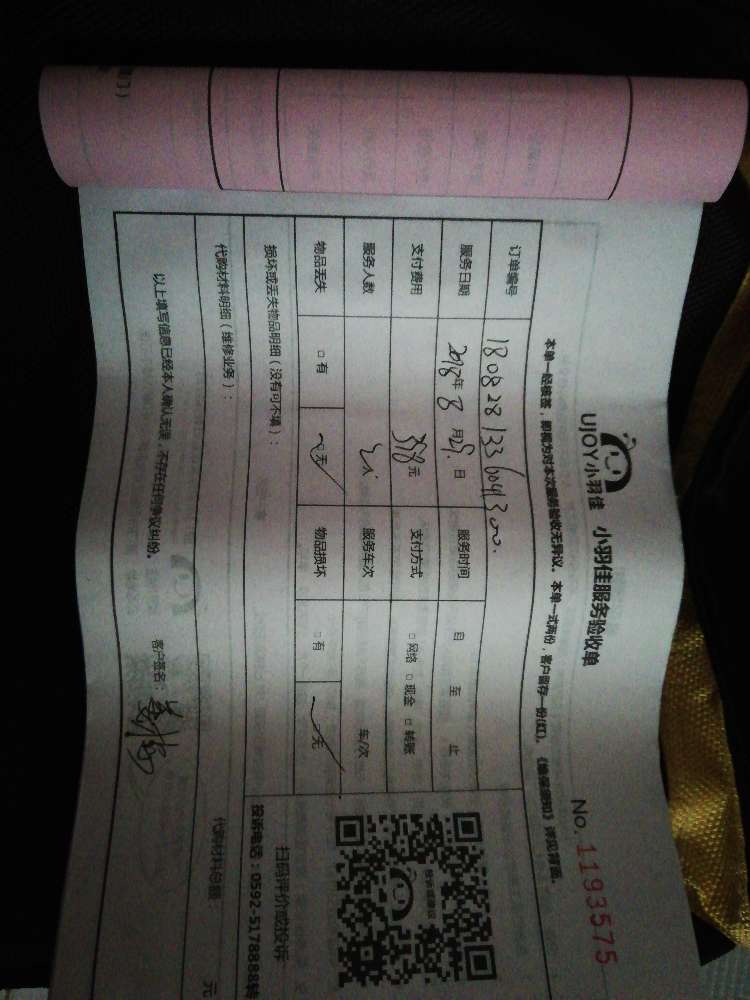 UJOY小羽佳 小羽佳服务验收单
No. 1193575
本单一经核签，即视为对本次服务验收无异议。本单一式两份，客户留存一份(红)。《售保须知》详见背面。
订单编号 180828133604300.
服务日期 2018年 8 月 29. 日 服务时间 自 至 止
支付费用 358元 支付方式 □ 网络 □ 现金 □ 转账
服务人数 服务车次 车/次
物品丢失 □ 有 □ 无 物品损坏 □ 有 □ 无
损坏或丢失物品明细（没有可不填）：
代购材料明细（维修业务）： 代购材料总额： 元
以上填写信息已经本人确认无误，不存在任何争议纠纷。 客户签名：
扫码评价或投诉
投诉电话：0592-5178888转